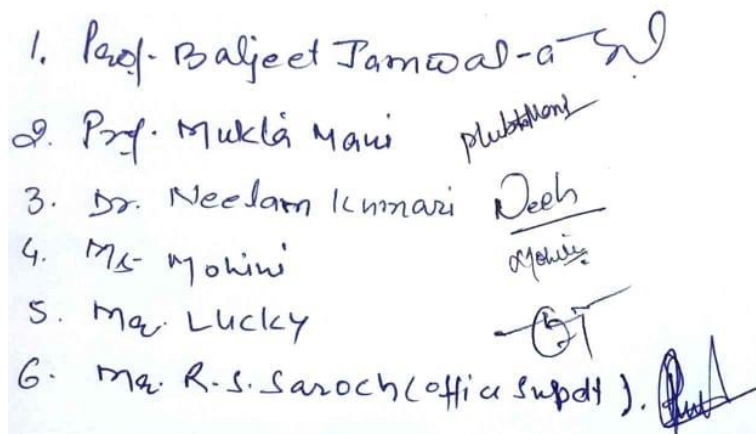 1. Prof. Baljeet Jamwal-a
2. Prof. Mukta Mani
3. Dr. Neelam Kumari Neelu
4. Ms Mohini Mohini
5. Mr. Lucky
6. Mr. R.S. Saroch (office Supdt).